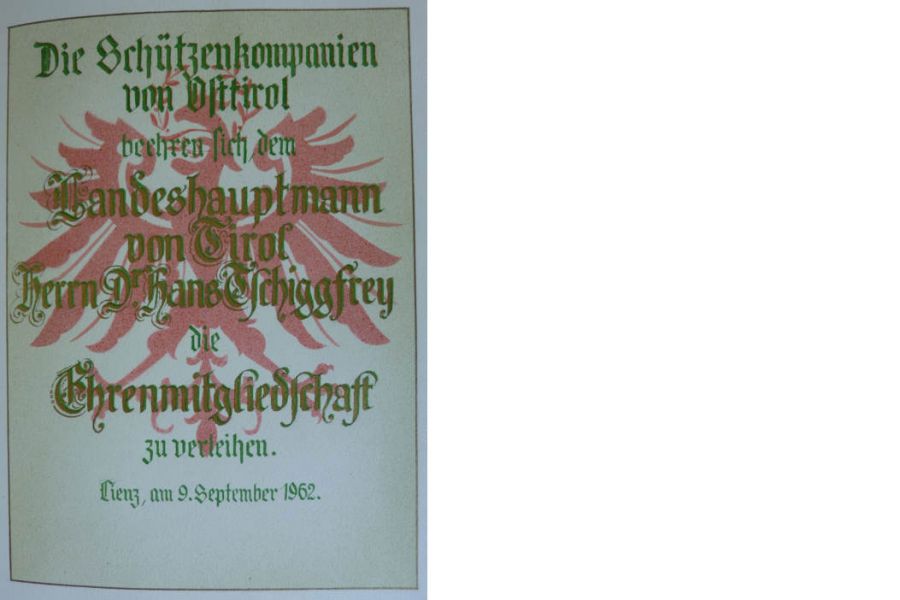 Die Schützenkompanien
von Osttirol
beehren sich, dem
Landeshauptmann
von Tirol
Herrn Dr. Hans Tschiggfrey
die
Ehrenmitgliedschaft
zu verleihen.
Lienz, am 9. September 1962.